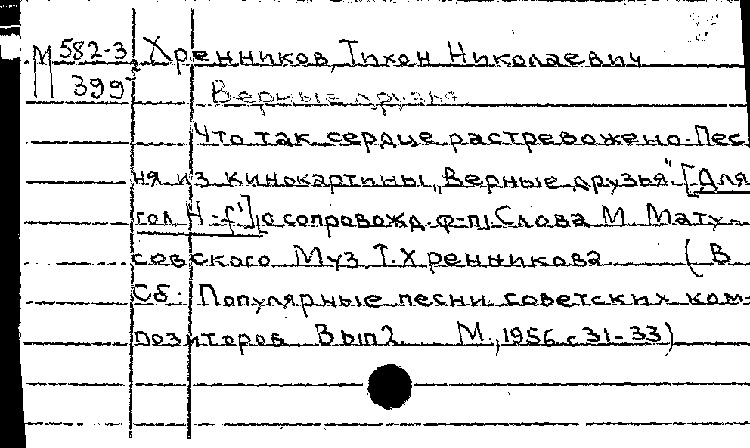 М 582-3 Хренников, Тихон Николаевич
399 Верные друзья
Что так сердце растревожено. Пес
ня из кинокартины „Верные друзья" [Для
гол. H-f¹] с сопровожд. ф-п. Слова М. Мату-
совского Муз. Т. Хренникова (В
Сб: Популярные песни советских ком-
позиторов Вып 2. М., 1956 с 31-33)